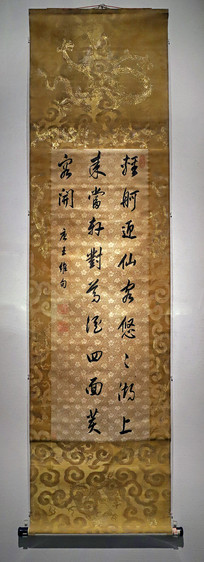 輕舸迎仙客悠〻湖上
来當軒對尊酒四面芙
容開
唐王維句